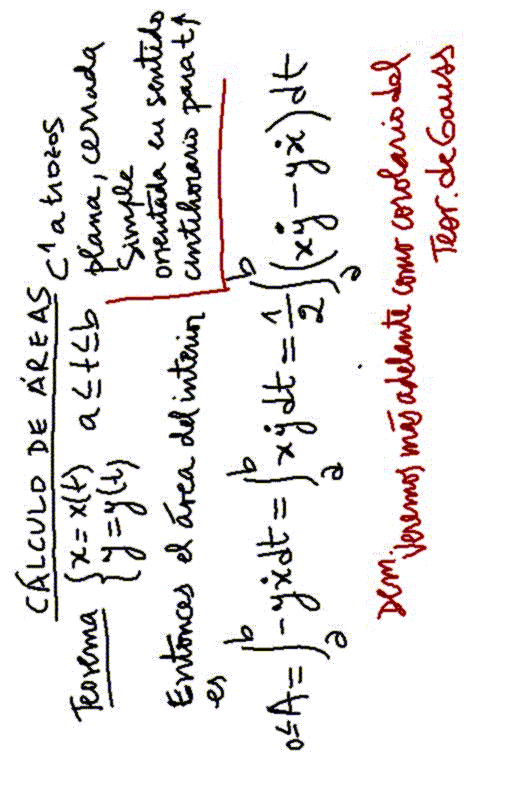 CÁLCULO DE ÁREAS
Teorema { x = x(t) a ≤ t ≤ b C¹ a trozos
{ y = y(t) plana, cerrada
simple
orientada en sentido
antihorario para t↑
Entonces el área del interior
es
0 ≤ A = ∫_a^b -yẋ dt = ∫_a^b xẏ dt = 1/2 ∫_a^b (xẏ - yẋ) dt
Dem. Veremos más adelante como corolario del
Teor. de Gauss